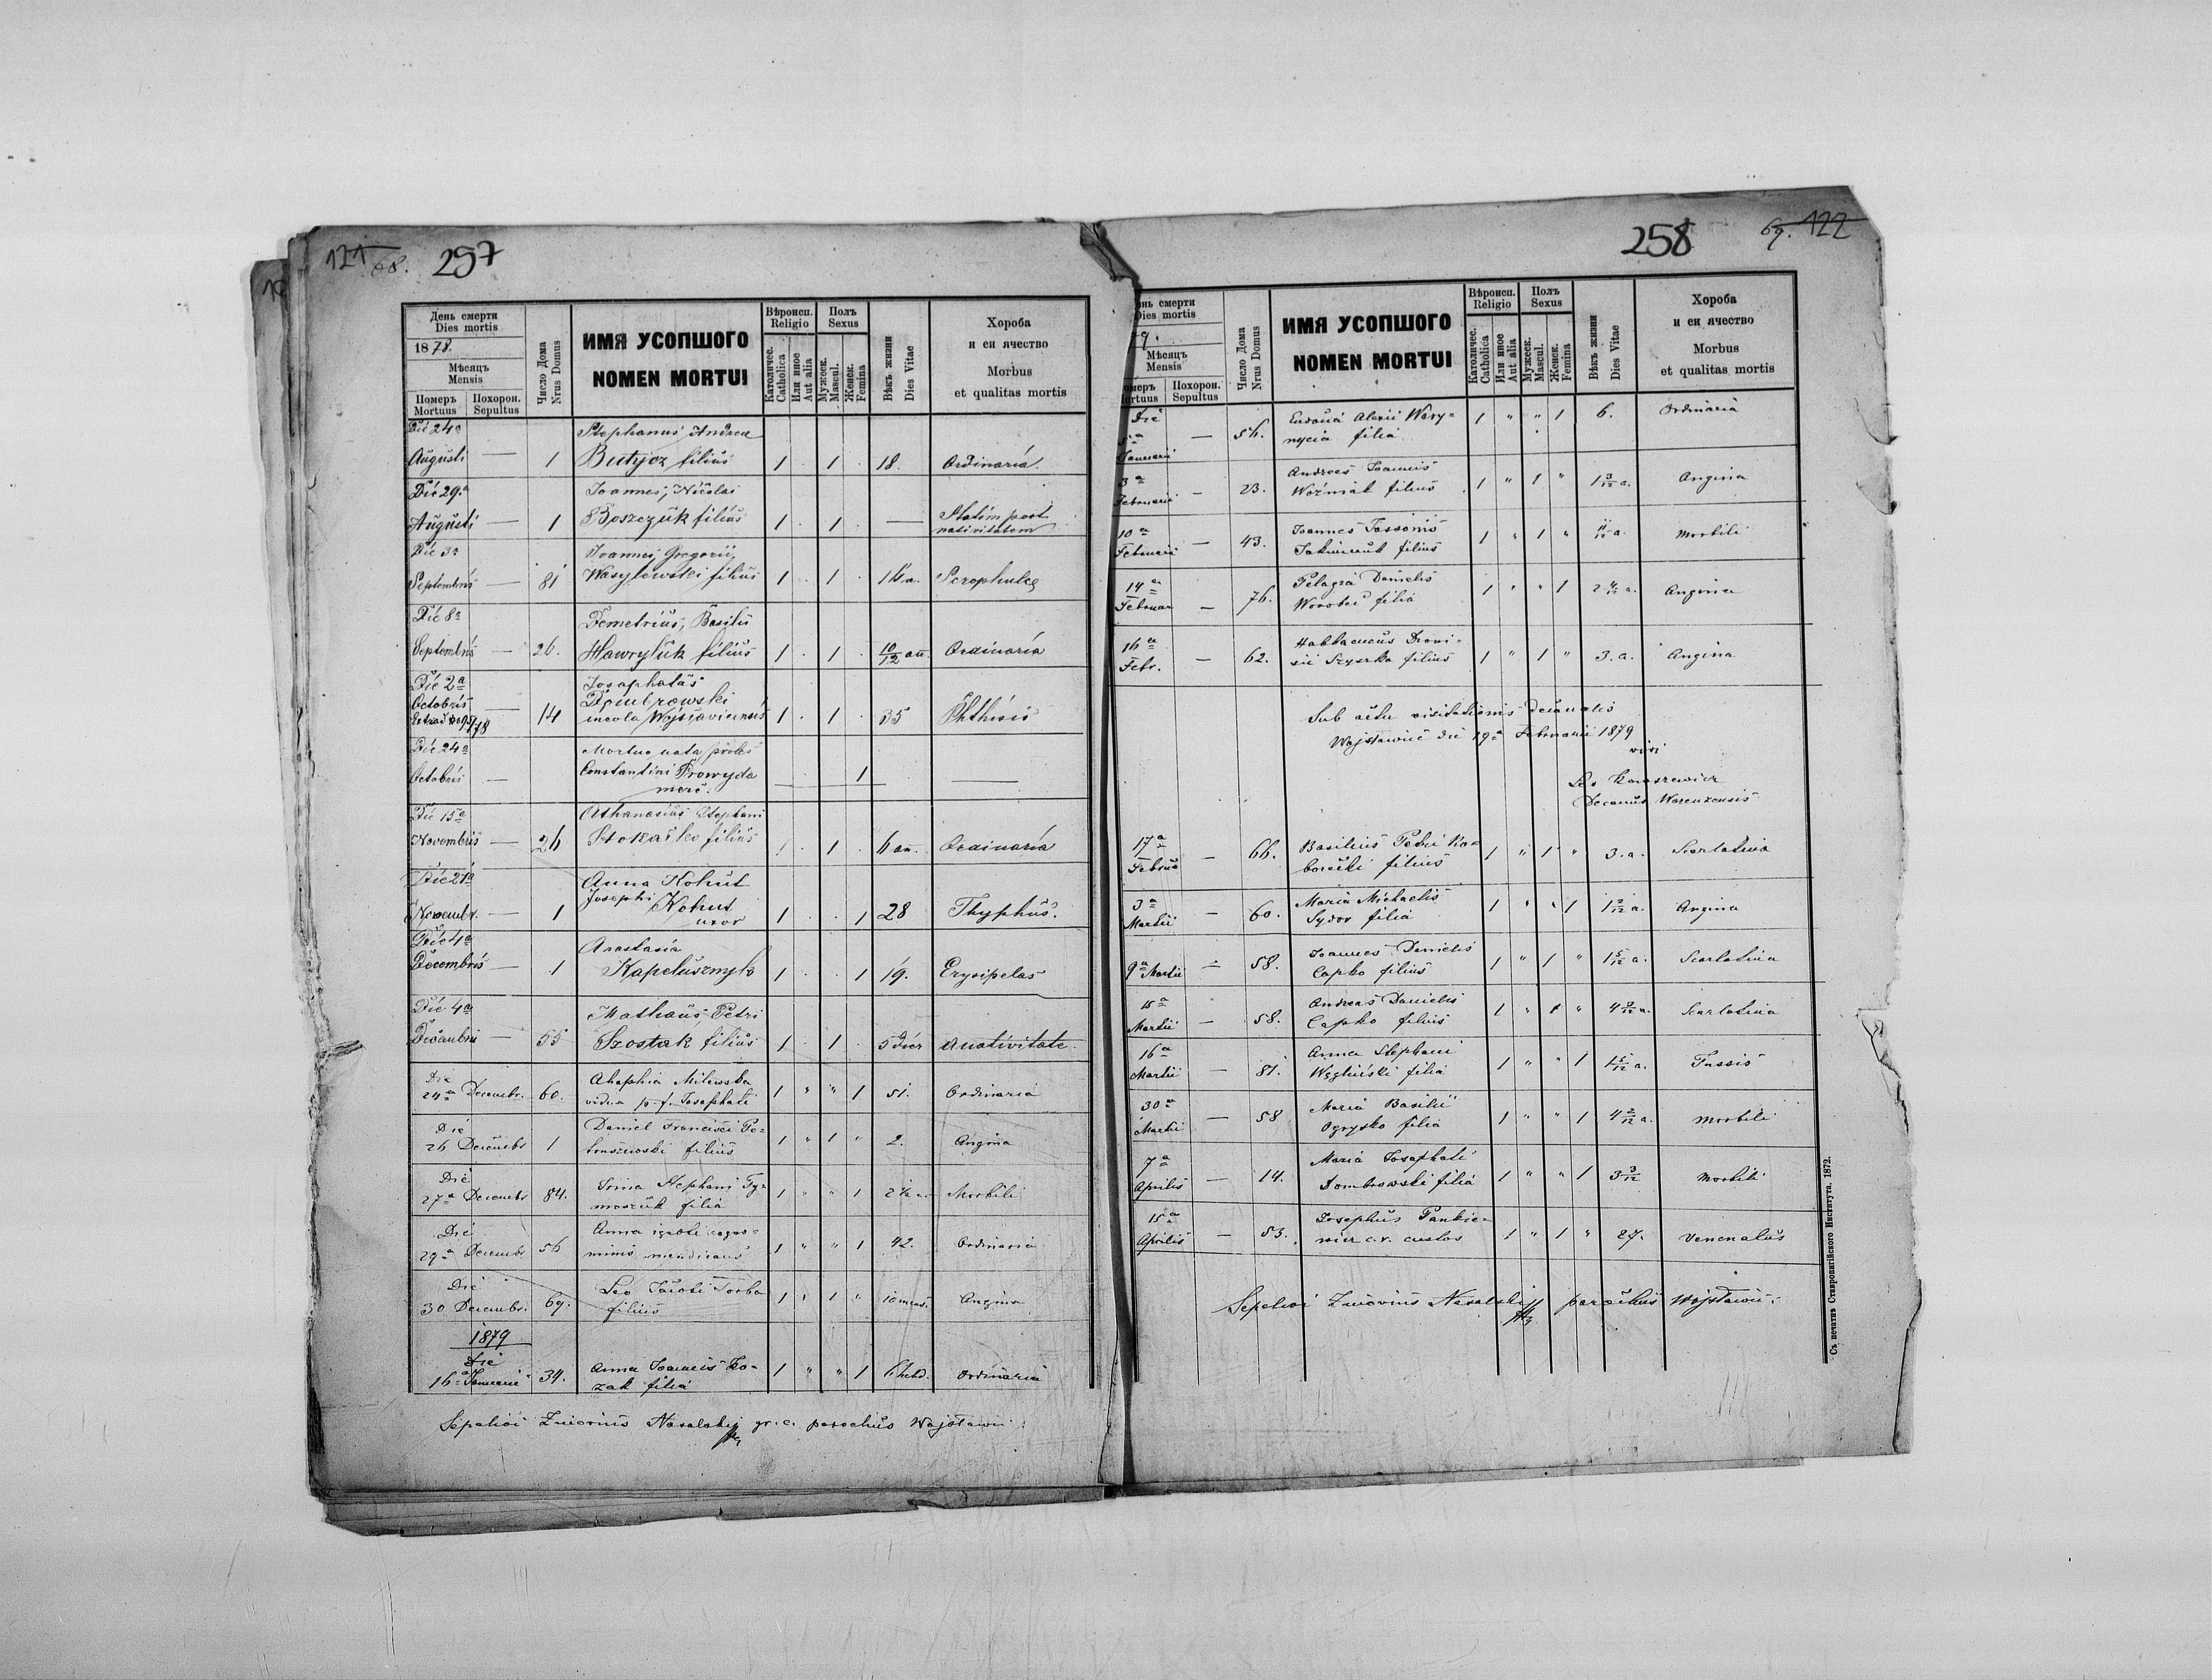 121 68. 257
День смерти
Dies mortis
1878.
Мѣсяцъ
Mensis
Померъ
Mortuus
Похорон.
Sepultus
Число Дома
Nrus Domus
ИМЯ УСОПШОГО
NOMEN MORTUI
Вѣроисп.
Religio
Католичес.
Catholica
Или иное
Aut alia
Полъ
Sexus
Мужеск.
Mascul.
Женск.
Femina
Вѣкъ жизни
Dies Vitae
Хороба
и еи ячество
Morbus
et qualitas mortis
Die 24a Stephanus Andreae
Augusti — 1 Butycz filius 1 . 1 . 18. Ordinaria.
Die 29.a Joannes, Nicolai
Augusti — 1 Boszczuk filius 1 . 1 . — Statim post
nativitatem
Die 3a Joannes, Gregorii,
Septembris — 81 Wasylewski filius 1 . 1 . Scrophulae
Die 8a Demetrius, Basilii
Septembris — 26. Hawryluk filius 1 . 1 . 10/12 an. Ordinaria
Die 2a Josaphatus
Octobris — Dombrowski
14 incola Wojslavicensis 1 . 1 . 35 Phthisis
Die 24a Mortuo nata proles
Octobris — Constantini Prowyda 1 —
Die 15a Athanasius Stephani
Novembris — 26 filius 1 . 1 . 6 an. Ordinaria
Die 21a Anna Kohut
Josephi Kohut
Novembr. — 1 uxor 1 . . 1 28 Thyphus.
Die 4a Anastasia
Decembris — 1 1 . . 1 19. Erysipelas
Die 4a Mathaus Petri
Decembris — 55 Szostak filius 1 . 1 . 5 dier a nativitate
Die Ahaphia Milewska
24a Decembr. 60. vidua p. f. Josaphati 1 " " 1 51. Ordinaria
Die Daniel Francisci Pe=
26 Decembr 1 truszewski filius 1 " 1 " 2. Angina
Die Irina Stephani Ty=
27a Decembr 84. moszuk filia 1 " " 1 Morbili
Die Anna ignoti cogno=
29a Decembr 56 minis mendicans 1 " " 1 42. Ordinaria
Die Leo Jacobi Torba
30 Decembr. 69. filius 1 " 1 " 10 mens. Angina
1879
Die
16a Januarii 34. Anna Joannis Ko=
zak filia 1 " " 1 6 hebd. Ordinaria
Sepelivi Nasalskij gr. c. parochus Wojslawic.
258 69. 122
нь смерти
Dies mortis
9.
Мѣсяцъ
Mensis
меръ
ortuus
Похорон.
Sepultus
Число Дома
Nrus Domus
ИМЯ УСОПШОГО
NOMEN MORTUI
Вѣроисп.
Religio
Католичес.
Catholica
Или иное
Aut alia
Полъ
Sexus
Мужеск.
Mascul.
Женск.
Femina
Вѣкъ жизни
Dies Vitae
Хороба
и еи ячество
Morbus
et qualitas mortis
Die Eudocia Alexii Wary=
5a Januarii — 56. nycia filia 1 " " 1 6. Ordinaria
3a Andreas Joannis
Februarii — 23. Woźniak filius 1 " 1 " 1 3/12 a. Angina
10a Joannes Jassonis
Februarii — 43. Jakimczuk filius 1 " 1 " 11/12 a. Morbili
14a Pelagia Danielis
Februar — 76. Worobec filia 1 " " 1 Angina
16a Habbacucus Dioni=
Febr. — 62. sii Szyszka filius 1 " 1 " 3. a. Angina
Sub actu visitationis decanalis
Wojslawice die 19a Februarii 1879
vidi
Decanus Warenzensis
17a Basilius Petri Ko=
Februa — 66. filius 1 " 1 " 3. a. Scarlatina
3a Maria Michaelis
Martii — 60. Sydor filia 1 " " 1 1 2/12 a. Angina
9a Martii — 58. Joannes Danielis
Capko filius 1 " 1 " 1 5/12 a. Scarlatina
15a Andreas Danielis
Martii — 58. Capko filius 1 " 1 " Scarlatina
16a Anna Stephani
Martii — 81. Węgliński filia 1 " " 1 1 5/12 a. Tussis
30a Maria Basilii
Martii — 58 Ogrysko filia 1 " " 1 4 2/12 a. Morbili
7a Maria Josaphati
Aprilis — 14. Dombrowski filia 1 " " 1 3 3/12 Morbili
15a Josephus Pankie=
Aprilis — 53. wicz c. r. custos 1 " 1 " 27. Venenatus
Sepelivi Nasalskij parochus Wojslawic.
Съ печатнѣ Ставропигійского Института, 1872.